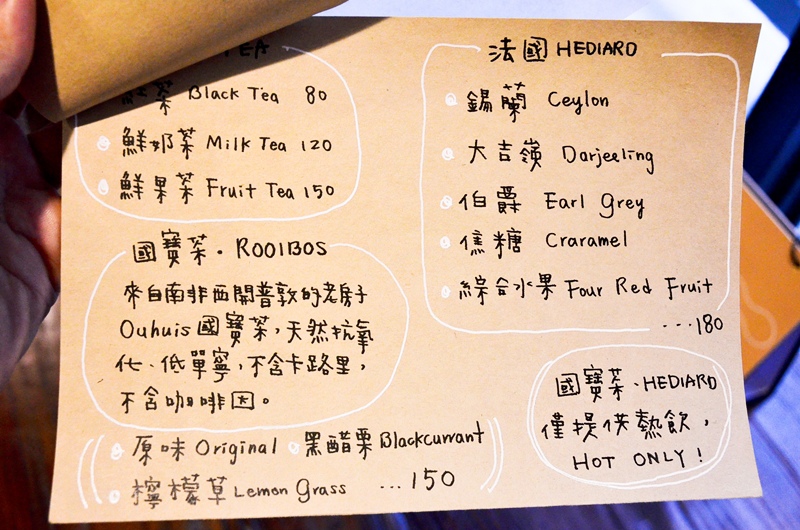 TEA
茶 Black Tea 80
鮮奶茶 Milk Tea 120
鮮果茶 Fruit Tea 150
國寶茶・ROOIBOS
來自南非西開普敦的老房子
Ouhuis國寶茶,天然抗氧
化、低單寧,不含卡路里,
不含咖啡因。
原味 Original 黑醋栗 Blackcurrant
檸檬草 Lemon Grass ...150
法國 HEDIARD
錫蘭 Ceylon
大吉嶺 Darjeeling
伯爵 Earl Grey
焦糖 Craramel
綜合水果 Four Red Fruit
...180
國寶茶、HEDIARD
僅提供熱飲,
HOT ONLY!